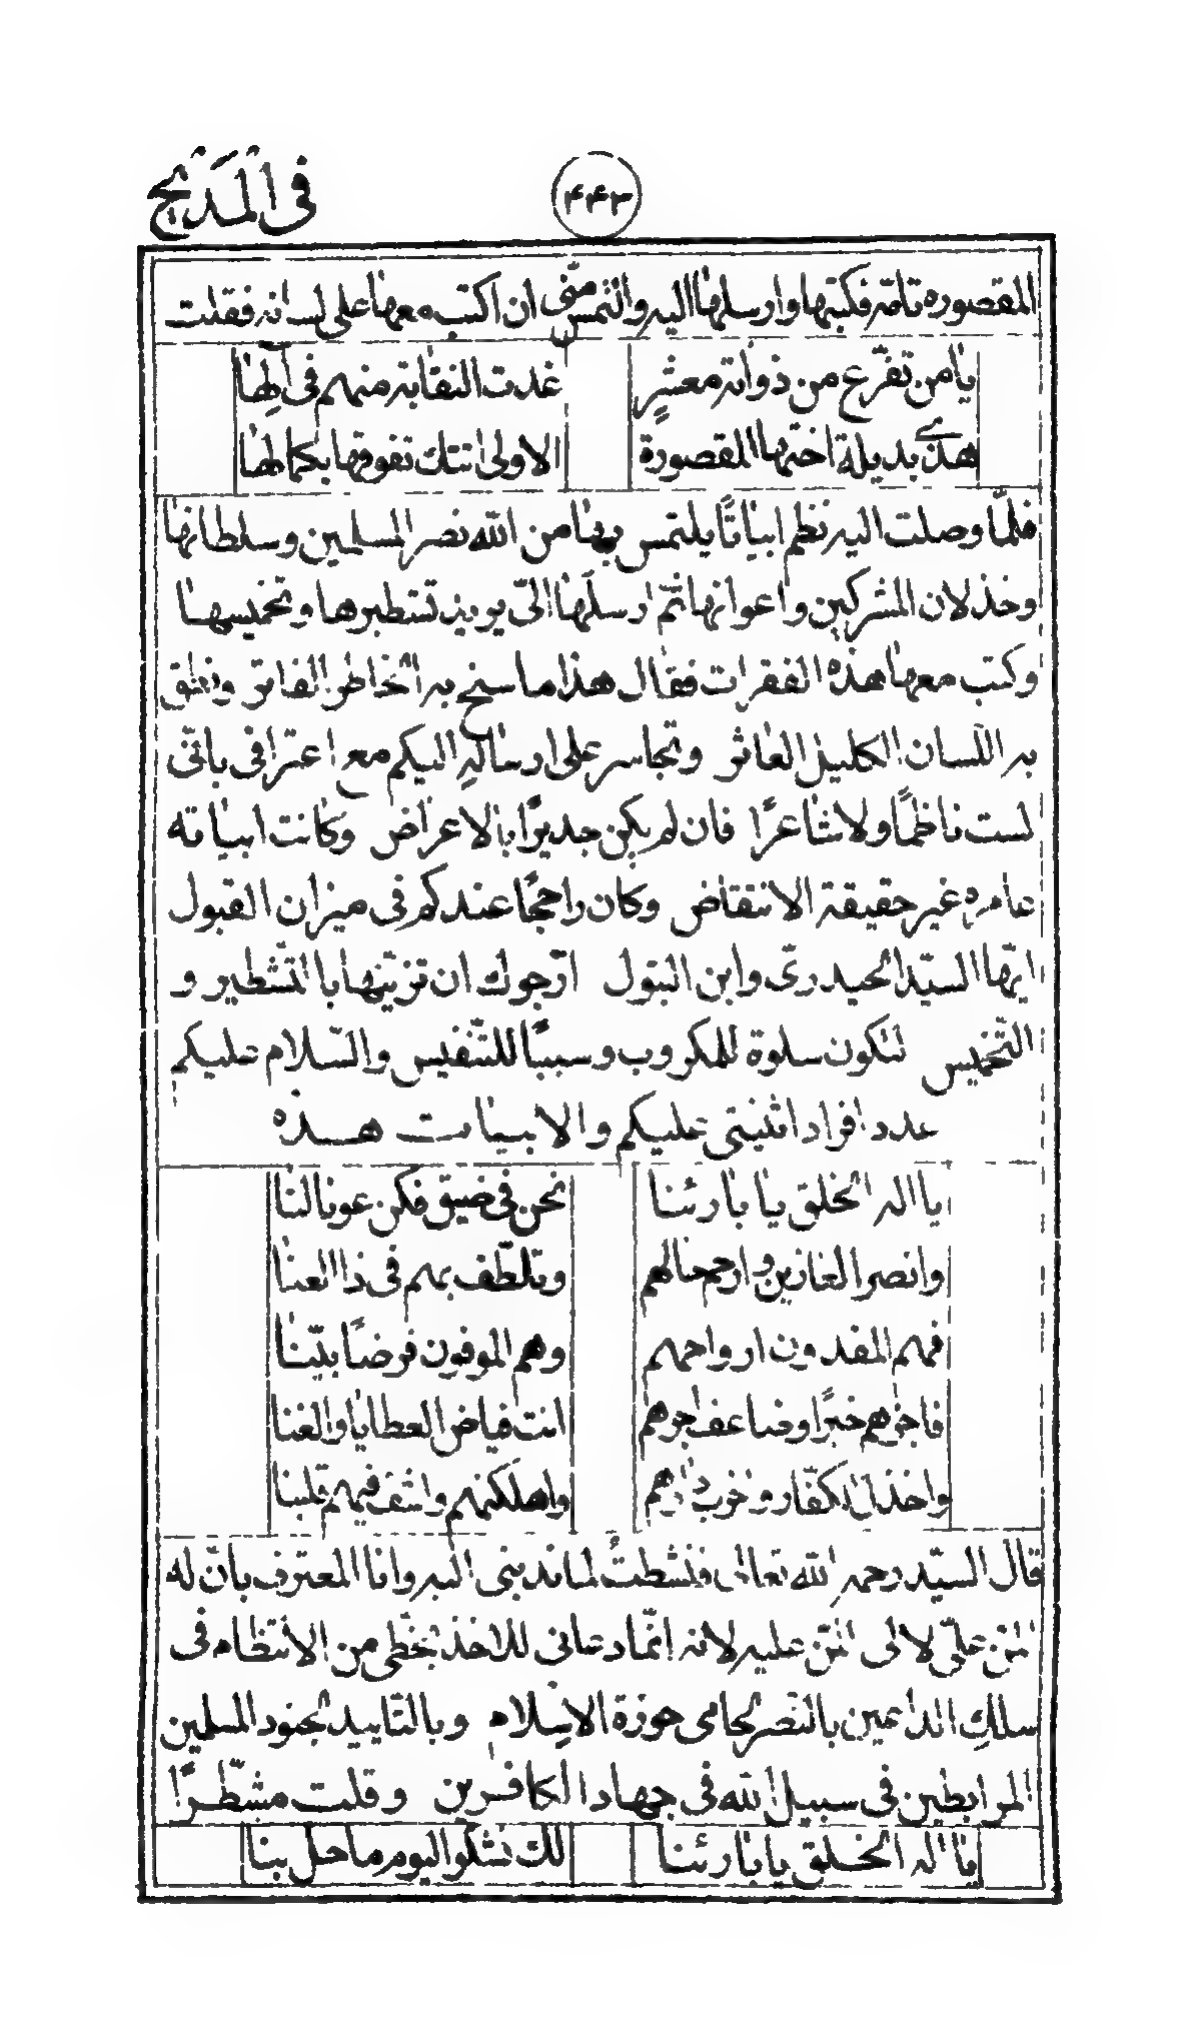 فى المديح
٤٤٣
المقصوره تامّة فكتبتها وارسلتها اليه والتمس منّى ان اكتب معها على لسانه فقلت
يا من تفرّع من ذوابة معشرٍ غدت النقابة منهم فى الها
هذى بديلة اختها المقصورة الاولى اتتك تفوقها بكمالها
فلمّا وصلت اليه نظم ابياتًا يلتمس بها من الله نصر المسلمين وسلطانها
وخذلان المشركين واعوانها ثمّ ارسلها الىّ يريد تشطيرها وتخميسها
وكتب معها هذه الفقرات فقال هذا ما سنح به الخاطر الفاتر ونطق
به اللسان الكليل العاثر وتجاسر على ارساله اليكم مع اعترافى بانّى
لست ناظمًا ولا شاعرًا فان لم يكن جديرًا بالاعراض وكانت ابياته
عامره غير حقيقة الانتقاض وكان راجحًا عندكم فى ميزان القبول
ايّها السيّد الحيدرىّ وابن البتول ارجوك ان تزيّنها بالتشطير و
التّخميس لتكون سلوة للمكروب وسببًا للتّنفيس والسّلام عليكم
عدد افراد اثنيتى عليكم والابيات هذه
يا اله الخلق يا بارئنا نحن فى ضيق فكن عونا لنا
وانصر الغازين وارحم حالهم وتلطّف بهم فى ذا العنا
فهم المفدون ارواحهم وهم الموفون فرضًا بيّنا
فاجزهم خيرًا وضاعف اجرهم انت فياض العطايا والغنا
واخذل الكفّار وخرب دارهم واهلكنهم واشف فيهم قلبنا
قال السيّد رحمه الله تعالى فنشطتُ لما ندبنى اليه وانا المعترف بانّ له
المنّ علىّ لا لى المنّ عليه لانه انّما دعانى للاخذ بخطّى من الانتظام فى
سلكِ الداعين بالنّصر لحامى حوزة الاسلام وبالتّاييد لجنود المسلمين
المرابطين فى سبيل الله فى جهاد الكافرين وقلت مشطّرًا
يا اله الخلق يا بارئنا لك نشكو اليوم ما حل بنا